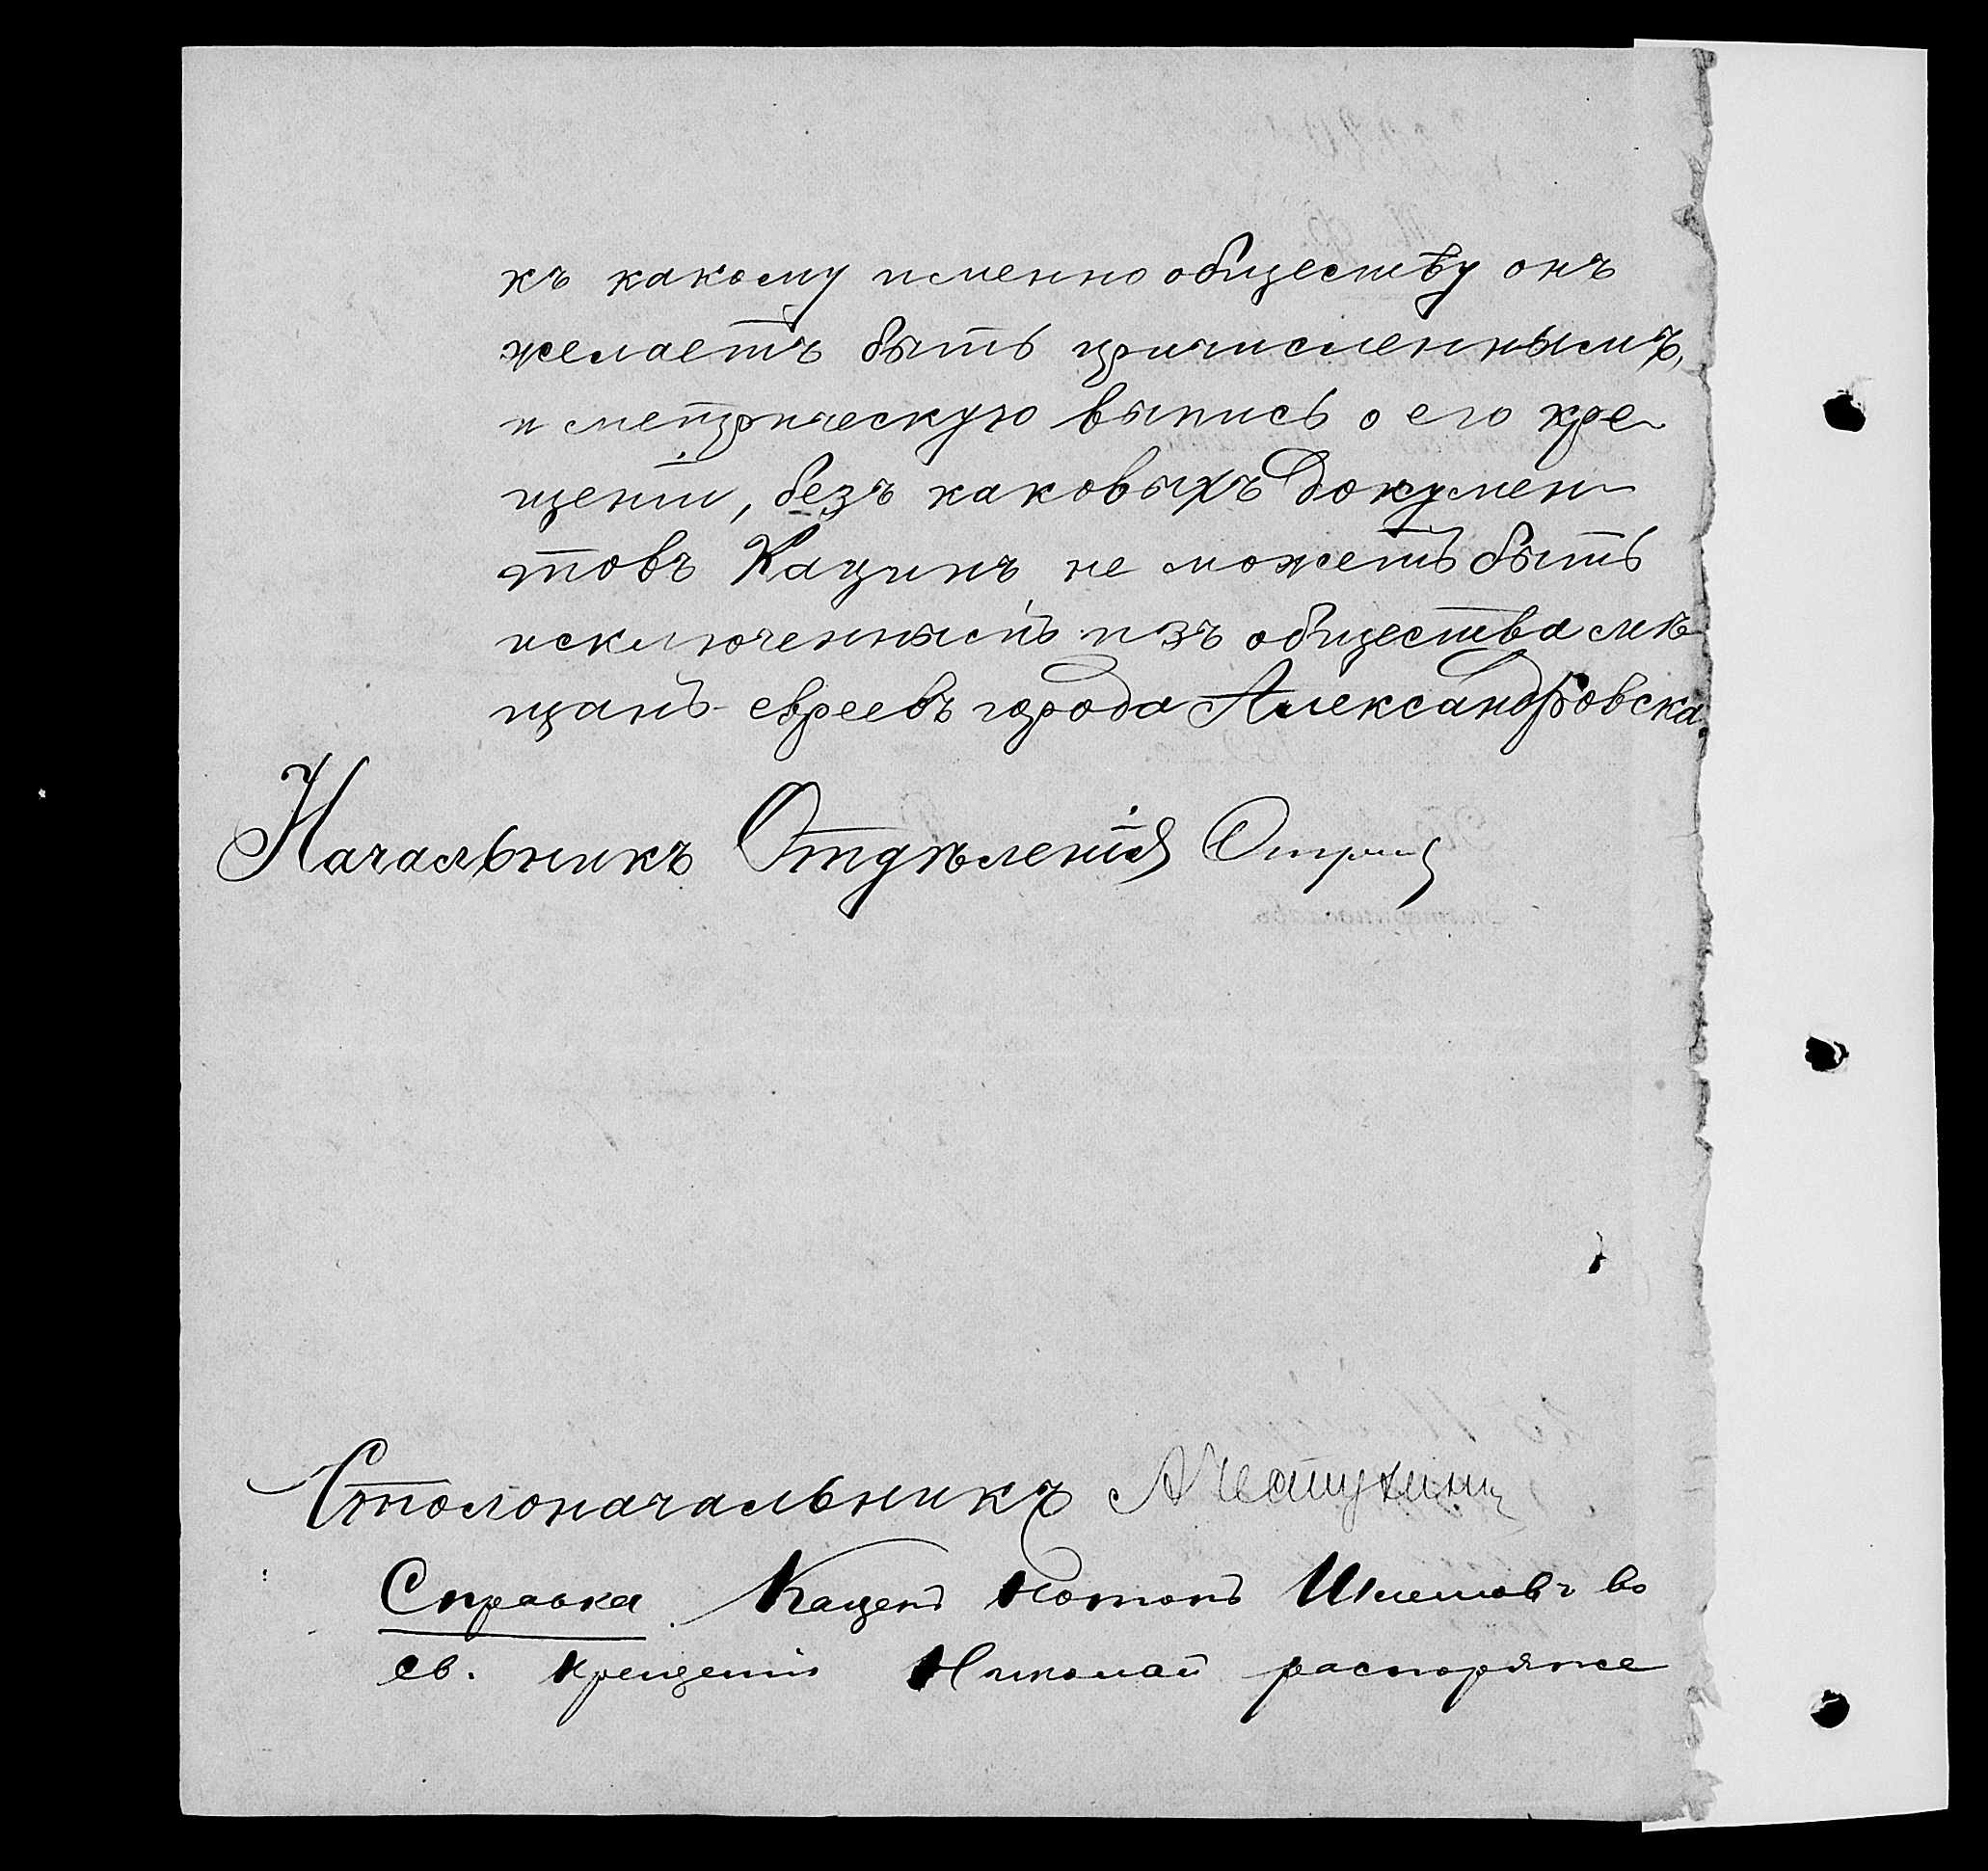 къ какому именно обществу онъ
желаетъ быть причисленнымъ,
и метрическую выпись о его кре-
щеніи, безъ каковыхъ докумен-
товъ Кацинъ не можетъ быть
исключеннымъ изъ общества мѣ-
щанъ-евреевъ города Александровска.
Начальникъ Отдѣленія
Столоначальникъ
Справка Каценъ Нотонъ Шлемовъ во
св. крещеніи Николай распоряже